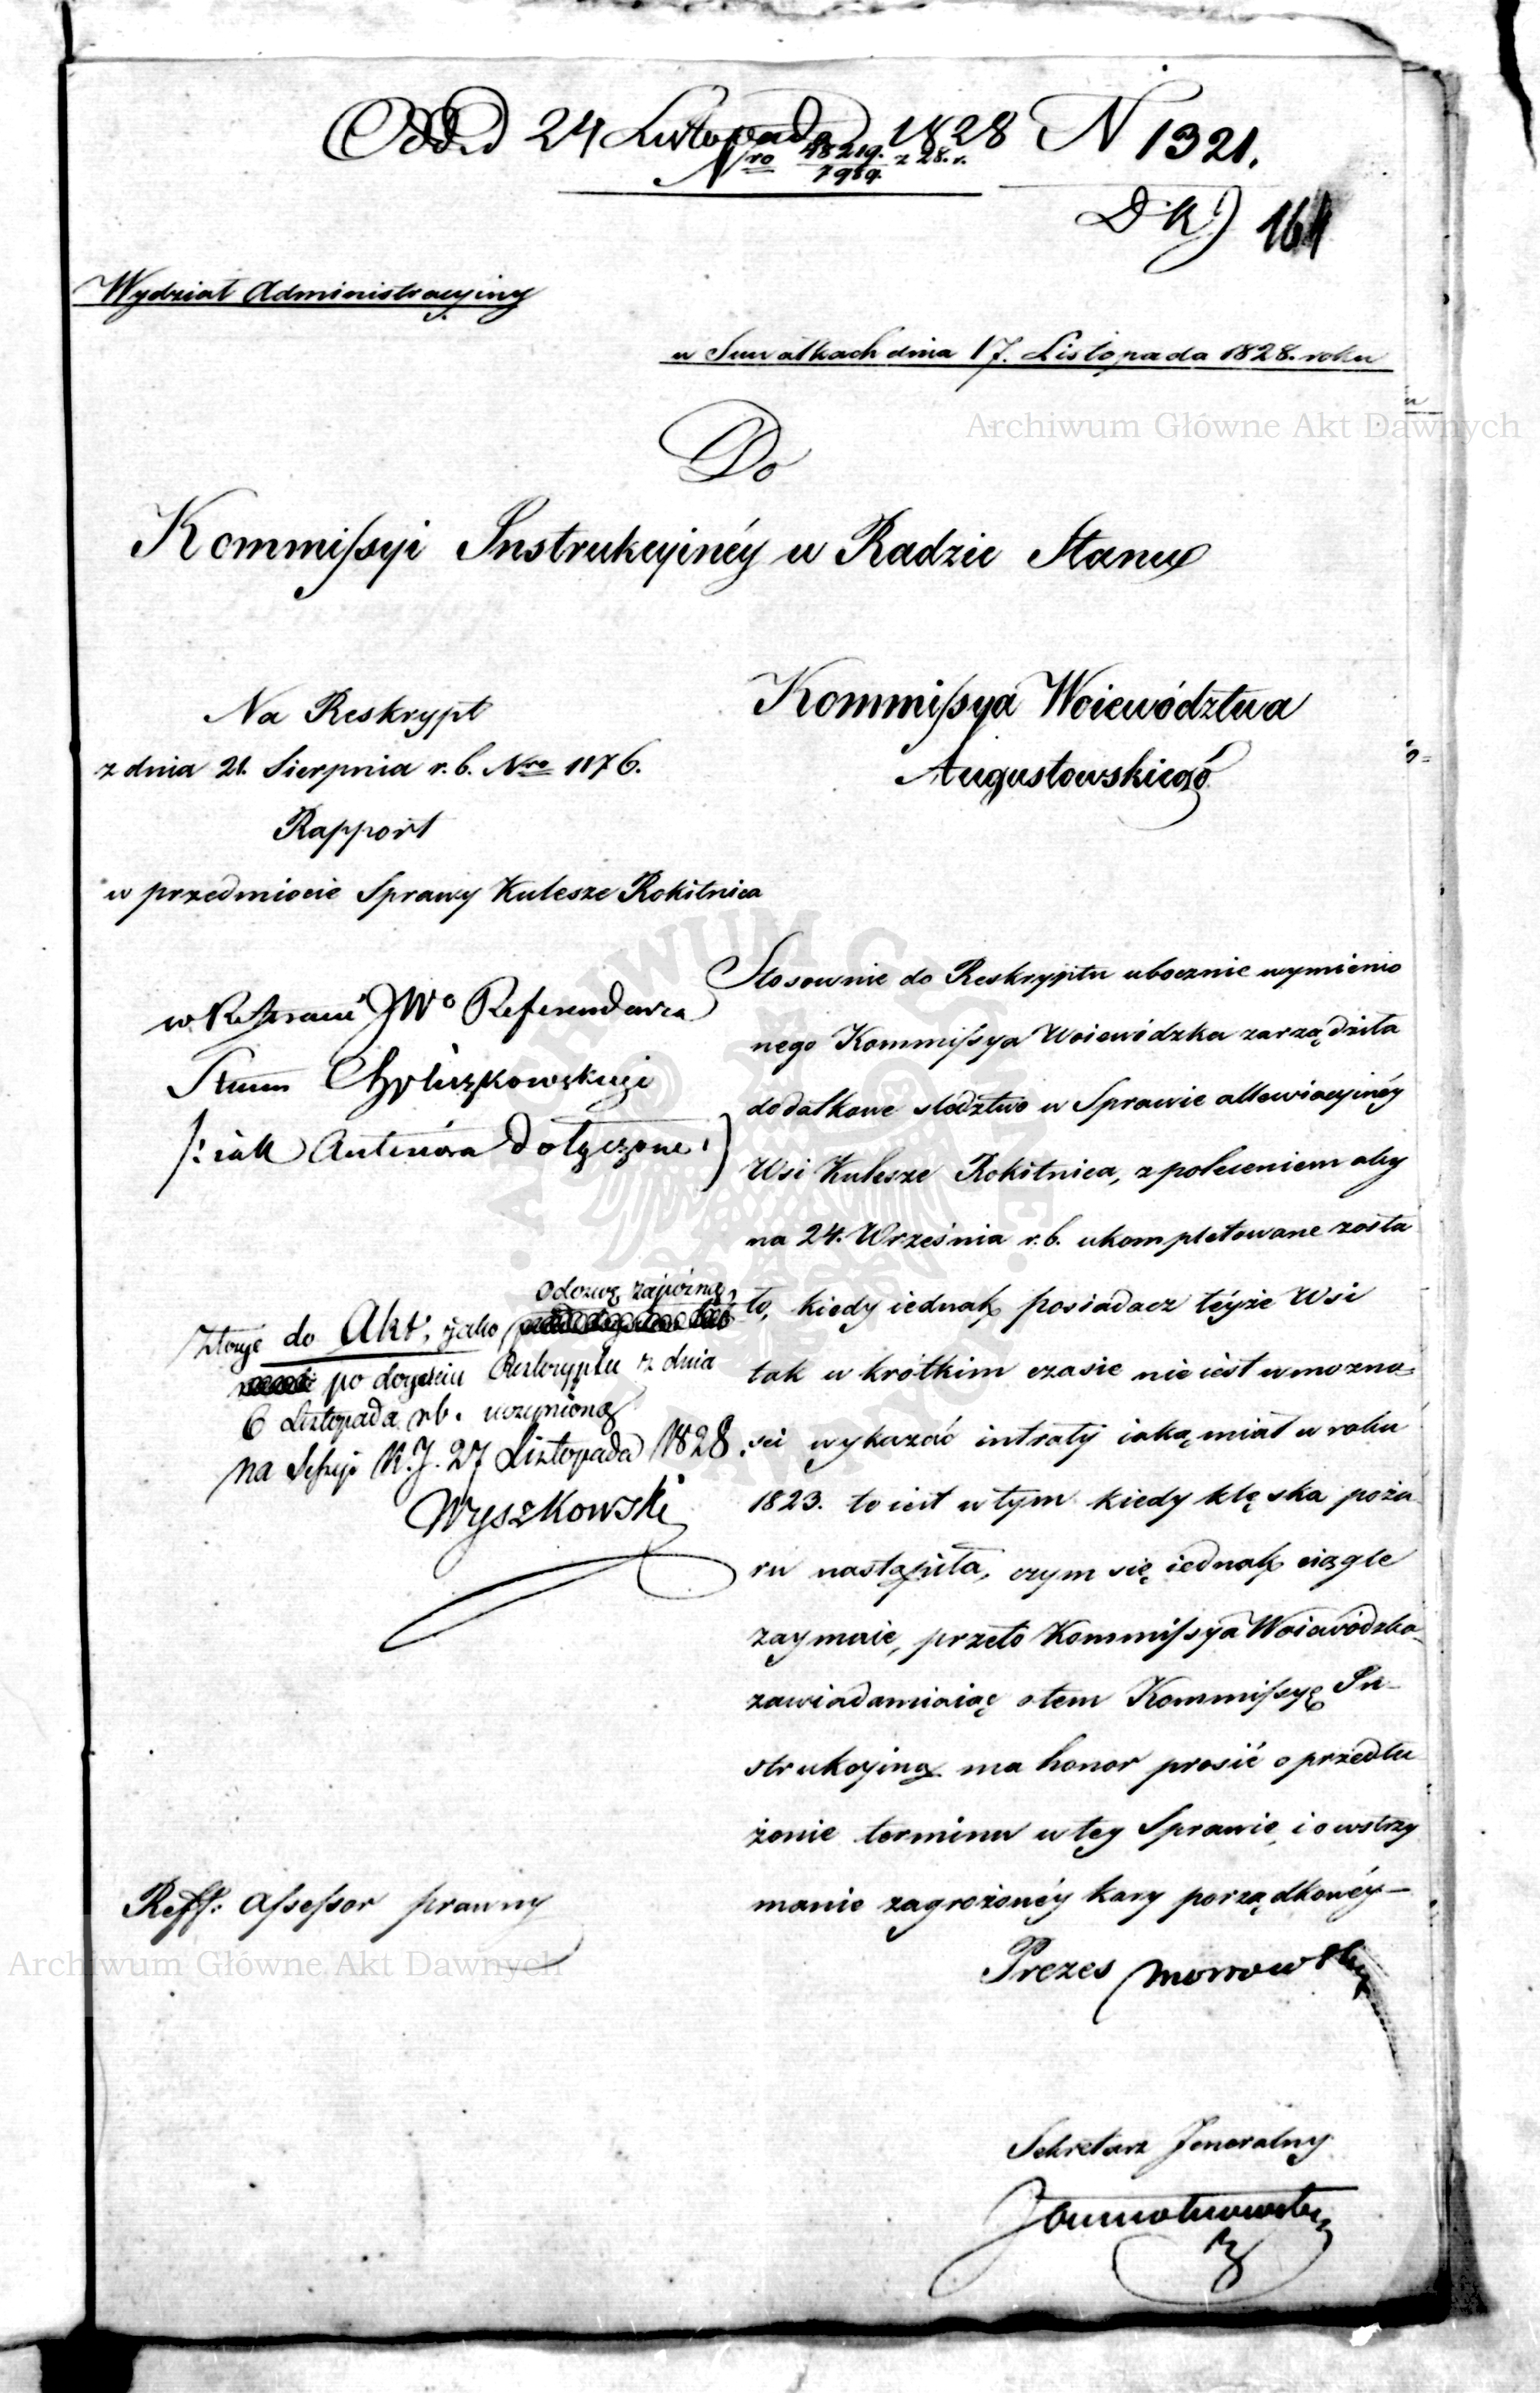 Odd 24 Listopada 1828 N 1321.
Nro 48219. z 28. r.
7989.
D.K.J 161
Wydział Administracyiny
w Suwałkach dnia 17. Listopada 1828. roku
Archiwum Główne Akt Dawnych
Do
Kommissyi Instrukcyinéy w Radzie Stanu
Na Reskrypt
z dnia 21. Sierpnia r. b. Nro 1176.
Rapport
w przedmiocie Sprawy Kulesze Rokitnica
Kommissya Woiewództwa
Augustowskiego
w Referacie JWo Referendarza
Stanu
/: iak Anteriora dotyczone :/
Złożyć do Akt, jako odezwę
po doyściu Reskryptu z dnia
6 Listopada r. b. uczynioną
na Sessyi K. J. 27 Listopada 1828.
Wyszkowski
Stosownie do Reskryptu ubocznie wymienio
nego Kommissya Woiewódzka zarządziła
dodatkowe śledztwo w Sprawie allewiacyinéy
Wsi Kulesze Rokitnica, z poleceniem aby
na 24. Września r. b. ukompletowane zosta
ło, kiedy iednak posiadacz téyże Wsi
tak w krótkim czasie nie iest w możno
sci wykazać intraty iaką miał w roku
1823. to iest w tym kiedy klęska poża
ru nastąpiła, czym się iednak ciągle
zaymuie, przeto Kommissya Woiewódzka
zawiadamiaiąc o tem Kommissyę In-
strukcyiną ma honor prosić o przedłu
żenie terminu w tey Sprawie, i o wstrzy
manie zagrożonéy kary porządkowéy —
Reff: Assessor prawny
Archiwum Główne Akt Dawnych
Prezes
Sekretarz Jeneralny